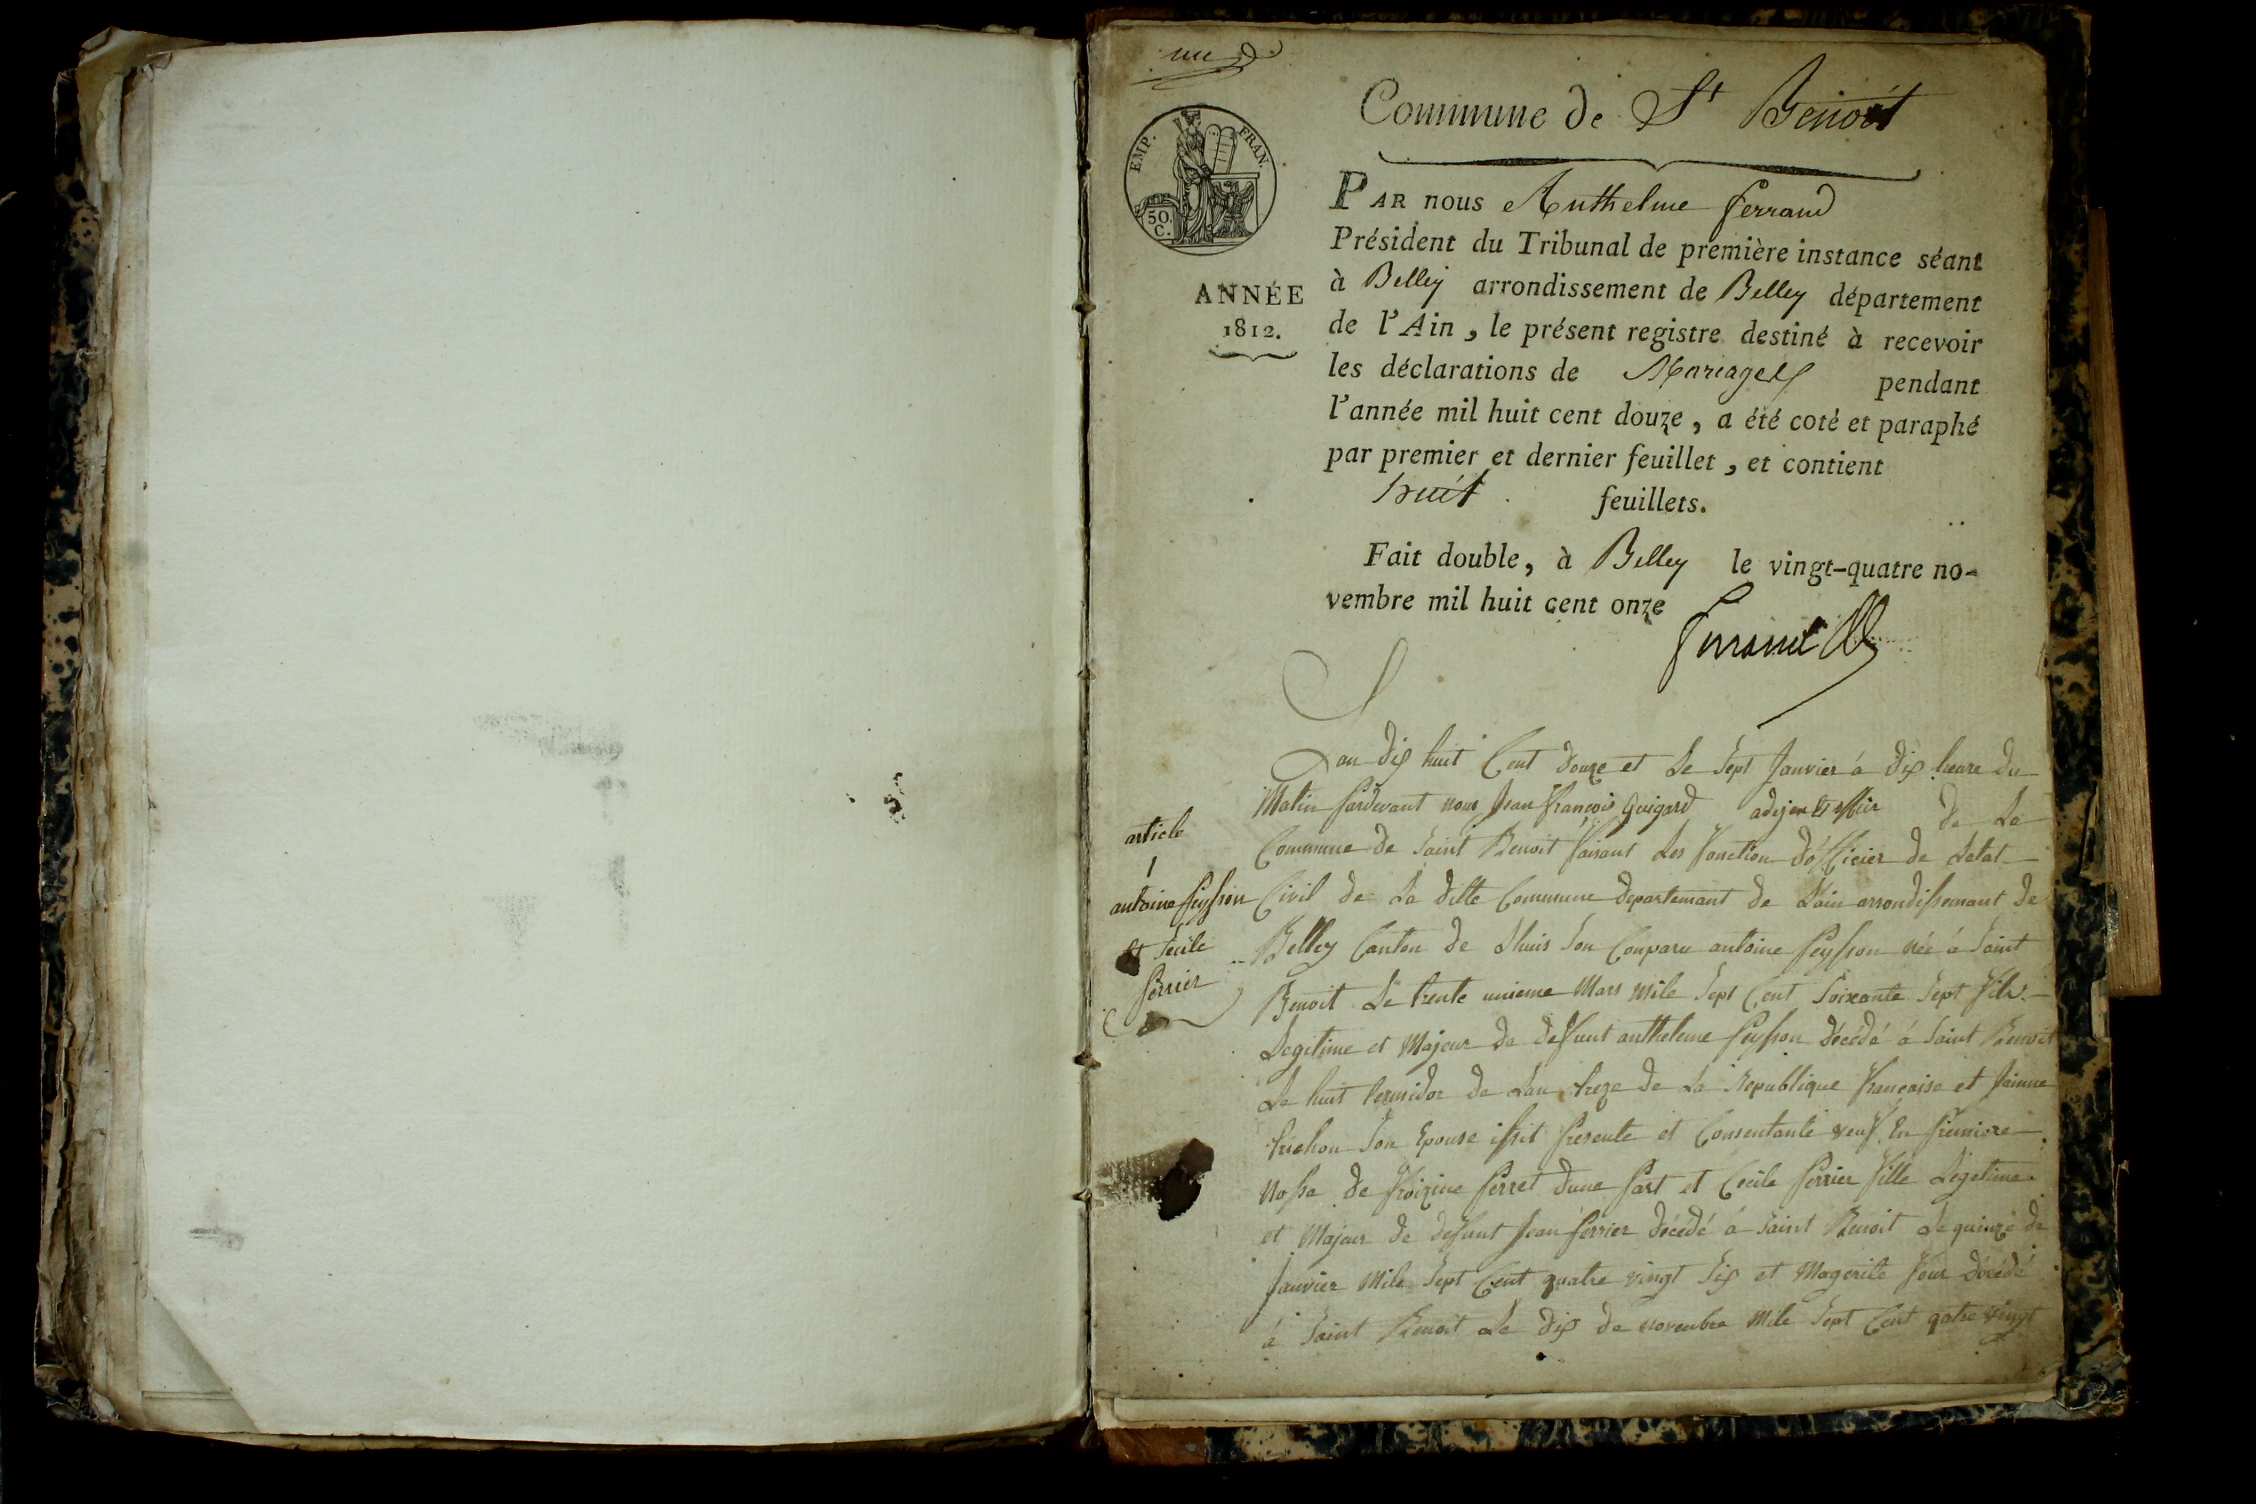 un
Commune de St Benoit
EMP. FRAN.
50. C.
ANNÉE
1812.
PAR nous Anthelme ferrand
Président du Tribunal de première instance séant
à Belley arrondissement de Belley département
de l'Ain, le présent registre destiné à recevoir
les déclarations de Mariages pendant
l'année mil huit cent douze, a été coté et paraphé
par premier et dernier feuillet, et contient
huit feuillets.
Fait double, à Belley le vingt-quatre no-
vembre mil huit cent onze
ferrand
Lan dix huit Cent douze et Le Sept Janvier à dix heure du
Matin pardevant nous Jean françois Guigard de La
Commune de Saint Benoit faisant Les fonction d'officier de Letat
Civil de La ditte Commune departemant de Lain arrondissemant de
Belley Canton de Lhuis Son Conparu antoine peysson née à Saint
Benoit Le trente unieme Mars Mile Sept Cent Soixante Sept fils
Legitime et Majeur de deffunt anthelme peysson décédé à Saint Benoit
Le huit termidor de Lan treze de La Republique française et
trichon Son Epouse issit presente et Consentante veuf En premiere
de ferret dune part et Cecile perrier fille Legetime
et Majeur de defunt Jean perrier décedé à Saint Benoit Le quinze de
Janvier Mile Sept Cent quatre vingt Six et decedé
à Saint Benoit Le dix de novenbre Mile Sept Cent qatre vingt
article
1
antoine peysson
et Secile
perrier